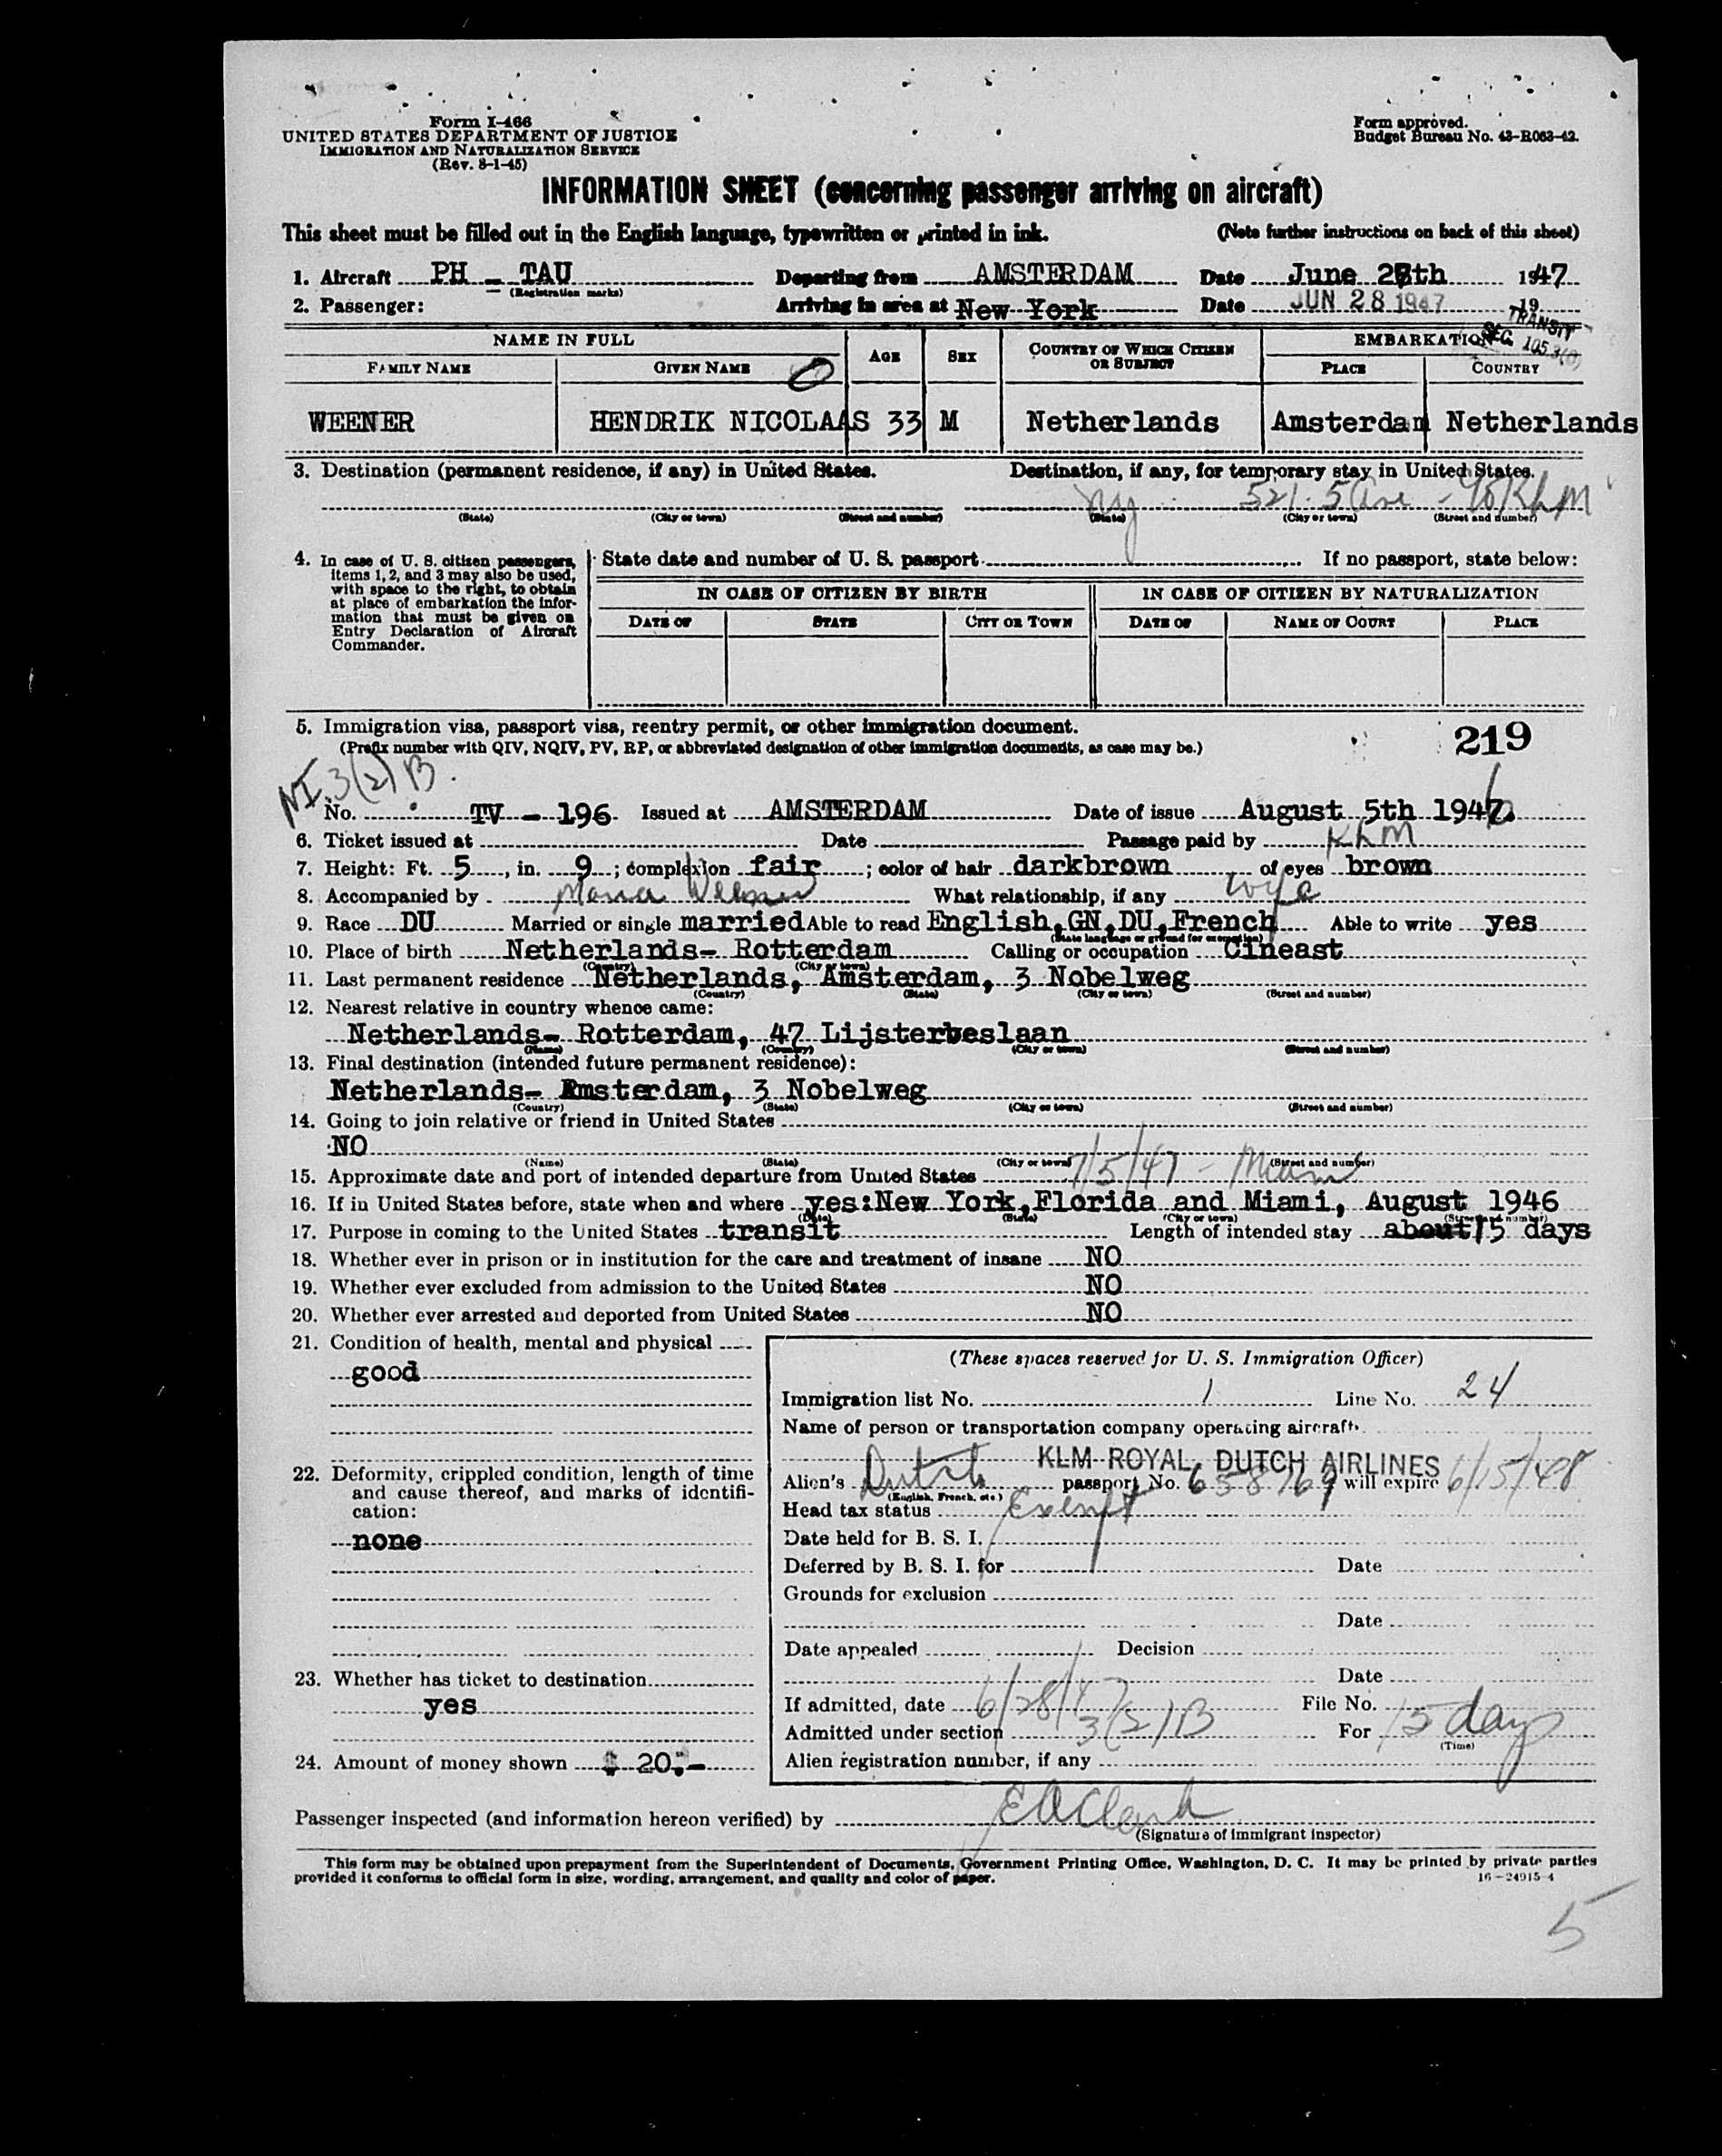 Form I-466
UNITED STATES DEPARTMENT OF JUSTICE
IMMIGRATION AND NATURALIZATION SERVICE
(Rev. 8-1-45)
Form approved.
Budget Bureau No. 43-R063-42.
INFORMATION SHEET (concerning passenger arriving on aircraft)
This sheet must be filled out in the English language, typewritten or printed in ink. (Note further instructions on back of this sheet)
1. Aircraft PH - TAU Departing from AMSTERDAM Date June 27th 1947
(Registration marks)
2. Passenger: Arriving in area at New York Date JUN 28 1947 19
TRANSIT
SEC. 105.3(0)
NAME IN FULL AGE SEX COUNTRY OF WHICH CITIZEN OR SUBJECT EMBARKATION
FAMILY NAME GIVEN NAME PLACE COUNTRY
WEENER HENDRIK NICOLAAS 33 M Netherlands Amsterdam Netherlands
3. Destination (permanent residence, if any) in United States. Destination, if any, for temporary stay in United States.
NY 521 5 Ave - % KLM
(State) (City or town) (Street and number) (State) (City or town) (Street and number)
4. In case of U. S. citizen passengers, items 1, 2, and 3 may also be used, with space to the right, to obtain at place of embarkation the information that must be given on Entry Declaration of Aircraft Commander.
State date and number of U. S. passport If no passport, state below:
IN CASE OF CITIZEN BY BIRTH IN CASE OF CITIZEN BY NATURALIZATION
DATE OF STATE CITY OR TOWN DATE OF NAME OF COURT PLACE
5. Immigration visa, passport visa, reentry permit, or other immigration document.
(Prefix number with QIV, NQIV, PV, RP, or abbreviated designation of other immigration documents, as case may be.)
219
NI 3(2)B
No. TV - 196 Issued at AMSTERDAM Date of issue August 5th 1946
6. Ticket issued at Date Passage paid by KLM
7. Height: Ft. 5, in. 9; complexion fair; color of hair darkbrown of eyes brown
8. Accompanied by Maria Weener What relationship, if any wife
9. Race DU Married or single married Able to read English,GN,DU,French Able to write yes
(State language or ground for exemption)
10. Place of birth Netherlands- Rotterdam Calling or occupation Cineast
(Country) (City or town)
11. Last permanent residence Netherlands, Amsterdam, 3 Nobelweg
(Country) (State) (City or town) (Street and number)
12. Nearest relative in country whence came:
Netherlands- Rotterdam, 47 Lijsterbeslaan
(Name) (Country) (City or town) (Street and number)
13. Final destination (intended future permanent residence):
Netherlands- Amsterdam, 3 Nobelweg
(Country) (State) (City or town) (Street and number)
14. Going to join relative or friend in United States
NO
(Name) (State) (City or town) (Street and number)
15. Approximate date and port of intended departure from United States 7/5/47 - Miami
16. If in United States before, state when and where yes:New York,Florida and Miami, August 1946
(Date) (State) (City or town) (Street and number)
17. Purpose in coming to the United States transit Length of intended stay about 15 days
18. Whether ever in prison or in institution for the care and treatment of insane NO
19. Whether ever excluded from admission to the United States NO
20. Whether ever arrested and deported from United States NO
21. Condition of health, mental and physical
good
22. Deformity, crippled condition, length of time and cause thereof, and marks of identification:
none
23. Whether has ticket to destination
yes
24. Amount of money shown $ 20.-
(These spaces reserved for U. S. Immigration Officer)
Immigration list No. 1 Line No. 24
Name of person or transportation company operating aircraft
KLM ROYAL DUTCH AIRLINES
Alien's Dutch passport No. 658769 will expire 6/15/48
(English, French, etc.)
Head tax status Exempt
Date held for B. S. I.
Deferred by B. S. I. for Date
Grounds for exclusion
Date
Date appealed Decision
Date
If admitted, date 6/28/47 File No.
Admitted under section 3(2)B For 15 days
(Time)
Alien registration number, if any
Passenger inspected (and information hereon verified) by E A Clark
(Signature of immigrant inspector)
This form may be obtained upon prepayment from the Superintendent of Documents, Government Printing Office, Washington, D. C. It may be printed by private parties
provided it conforms to official form in size, wording, arrangement, and quality and color of paper.
16-24915-4
5